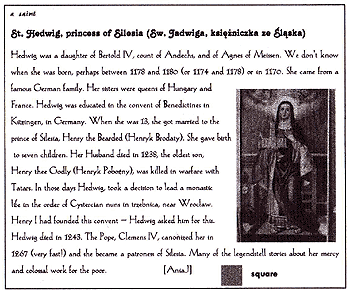 a saint
St. Hedwig, princess of Silesia (Św. Jadwiga, księżniczka ze Śląska)
Hedwig was a daughter of Bertold IV, count of Andechs, and of Agnes of Meissen. We don't know
when she was born, perhaps between 1178 and 1180 (or 1174 and 1178) or in 1170. She came from a
famous German family. Her sisters were queens of Hungary and
France. Hedwig was educated in the convent of Benedictines in
Kitzingen, in Germany. When she was 13, she got married to the
prince of Silesia, Henry the Bearded (Henryk Brodaty). She gave birth
to seven children. Her Husband died in 1238, the oldest son,
Henry thee Godly (Henryk Pobożny), was killed in warfare with
Tatars. In those days Hedwig, took a decision to lead a monastic
life in the order of Cystercian nuns in trzebnica, near Wrocław.
Henry I had founded this convent – Hedwig asked him for this.
Hedwig died in 1243. The Pope, Clemens IV, canonized her in
1267 (very fast!) and she became a patroness of Silesia. Many of the legendstell stories about her mercy
and colossal work for the poor. [Ania.J]
square